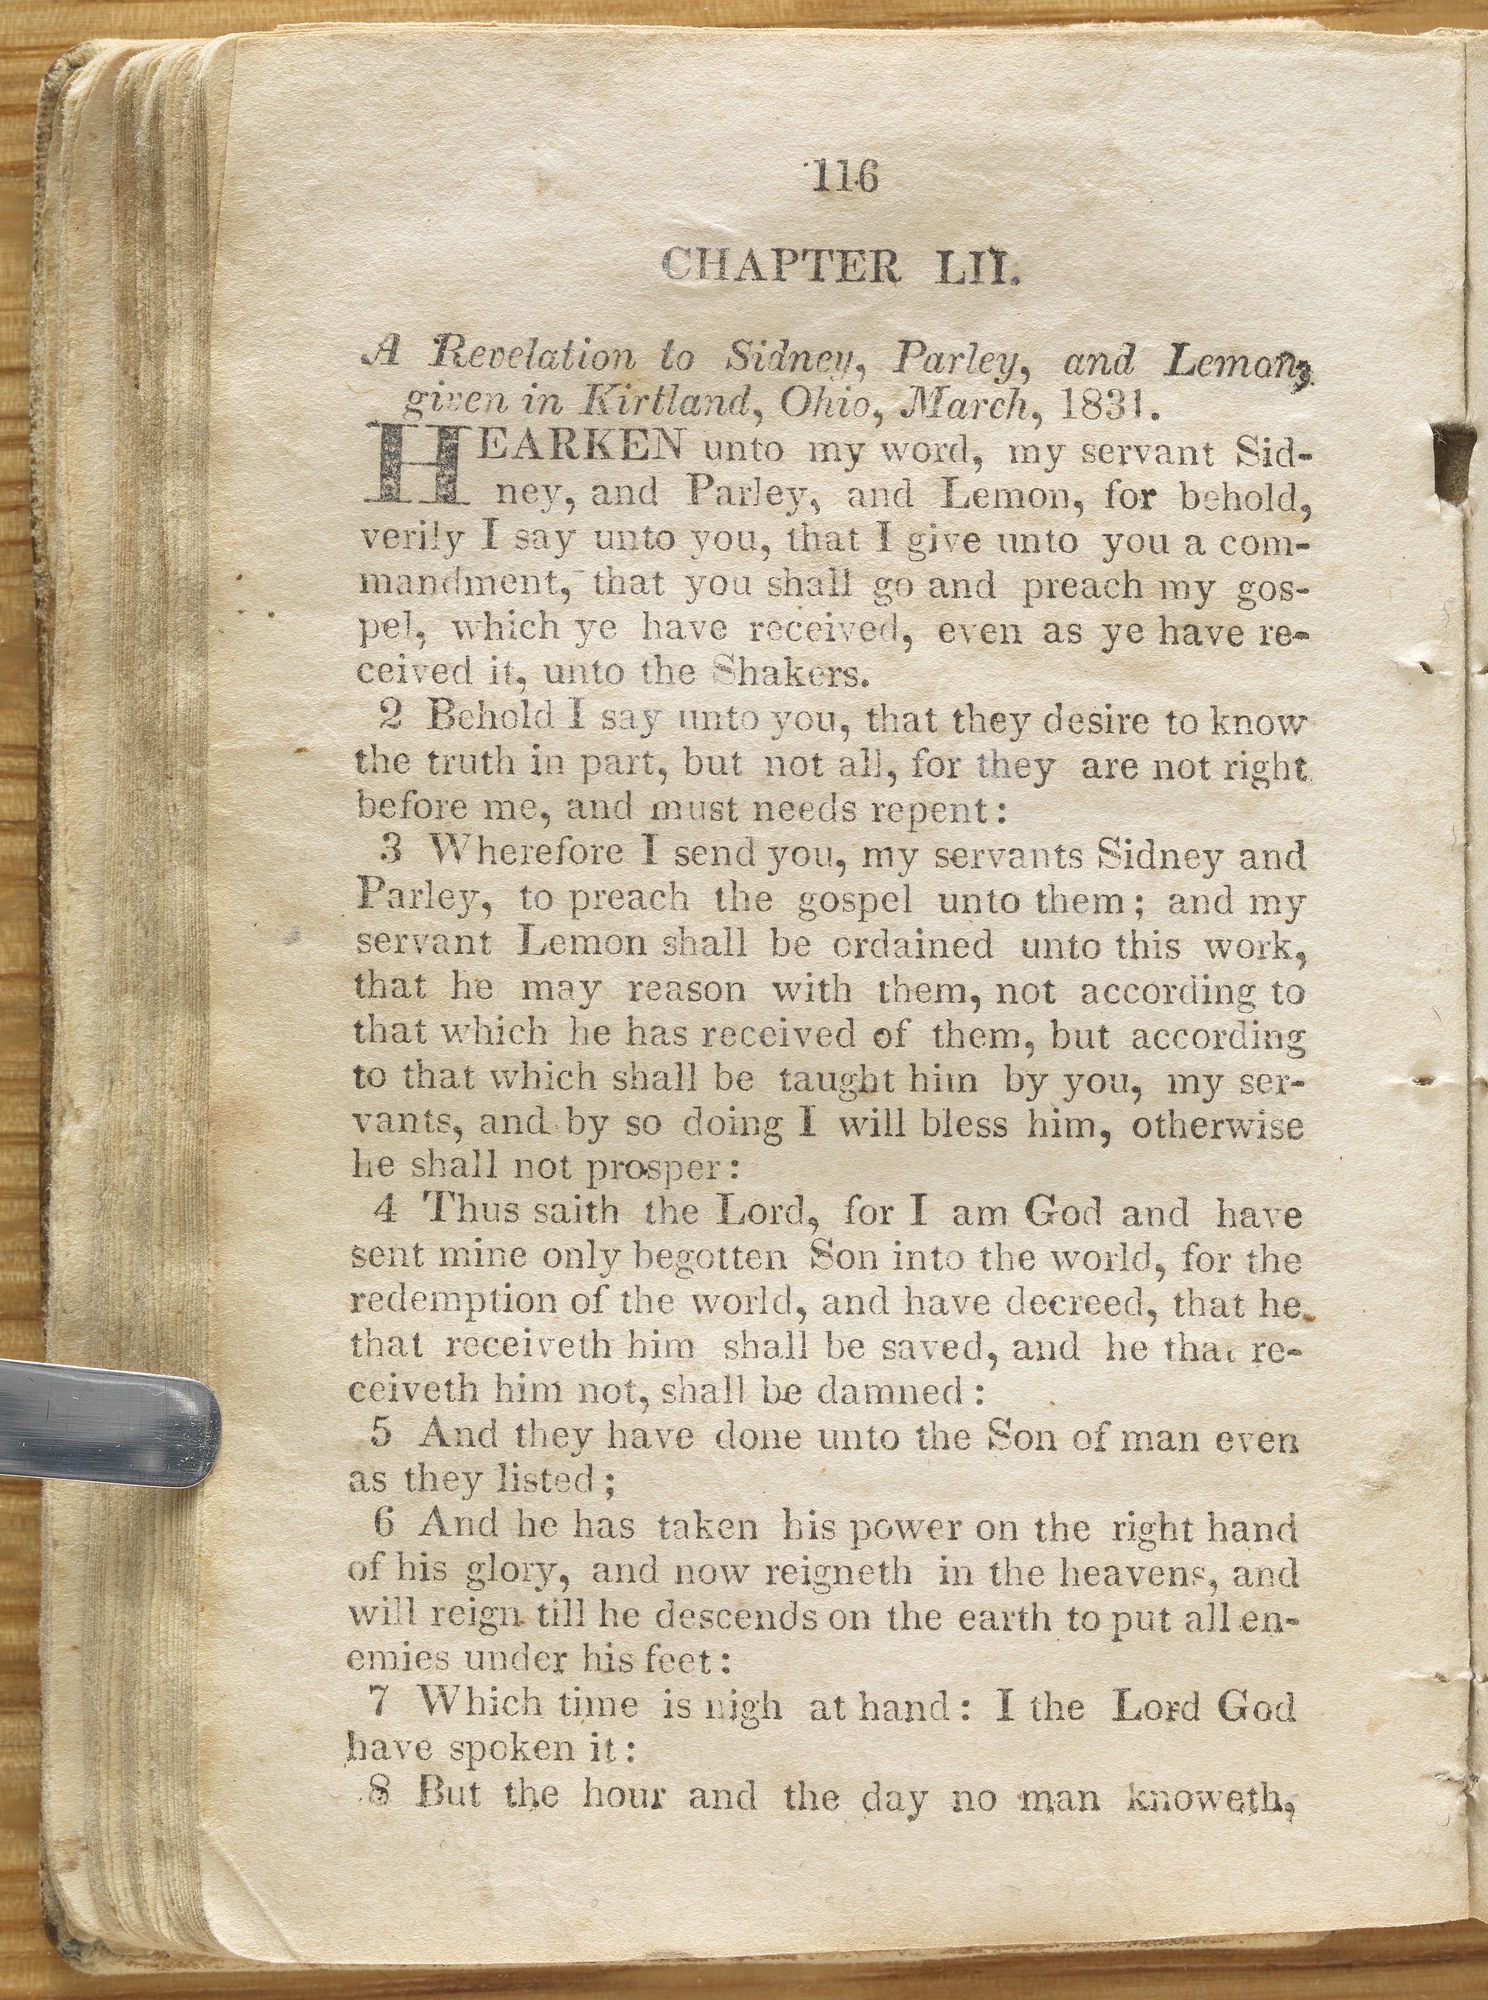 116
CHAPTER LII.
A Revelation to Sidney, Parley, and Lemon,
given in Kirtland, Ohio, March, 1831.
HEARKEN unto my word, my servant Sid-
ney, and Parley, and Lemon, for behold,
verily I say unto you, that I give unto you a com-
mandment, that you shall go and preach my gos-
pel, which ye have received, even as ye have re-
ceived it, unto the Shakers.
2 Behold I say unto you, that they desire to know
the truth in part, but not all, for they are not right
before me, and must needs repent:
3 Wherefore I send you, my servants Sidney and
Parley, to preach the gospel unto them; and my
servant Lemon shall be ordained unto this work,
that he may reason with them, not according to
that which he has received of them, but according
to that which shall be taught him by you, my ser-
vants, and by so doing I will bless him, otherwise
he shall not prosper:
4 Thus saith the Lord, for I am God and have
sent mine only begotten Son into the world, for the
redemption of the world, and have decreed, that he
that receiveth him shall be saved, and he that re-
ceiveth him not, shall be damned:
5 And they have done unto the Son of man even
as they listed;
6 And he has taken his power on the right hand
of his glory, and now reigneth in the heavens, and
will reign till he descends on the earth to put all en-
emies under his feet:
7 Which time is nigh at hand: I the Lord God
have spoken it:
8 But the hour and the day no man knoweth,